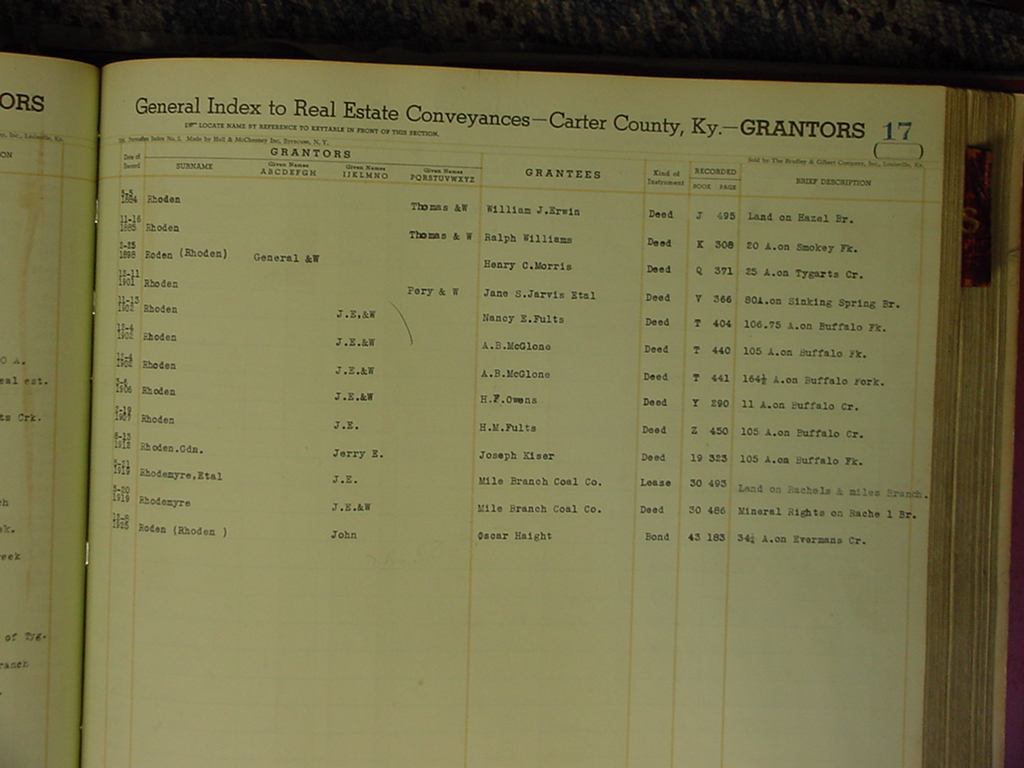 ORS
ON
0 A.
eal est.
ts Crk.
ch
ek.
reek
of Tyg-
ranch
General Index to Real Estate Conveyances—Carter County, Ky.—GRANTORS 17
LOCATE NAME BY REFERENCE TO KEYTABLE IN FRONT OF THIS SECTION.
Index No. 5. Made by Hall & McChesney Inc., Syracuse, N. Y. Sold by The Bradley & Gilbert Company, Inc., Louisville, Ky.
GRANTORS
Date of Record SURNAME Given Names ABCDEFGH Given Names IJKLMNO Given Names PQRSTUVWXYZ GRANTEES Kind of Instrument RECORDED BOOK PAGE BRIEF DESCRIPTION
5-5 1884 Rhoden Thomas &W William J.Erwin Deed J 495 Land on Hazel Br.
11-16 1885 Rhoden Thomas & W Ralph Williams Deed K 308 20 A.on Smokey Fk.
2-25 1898 Roden (Rhoden) General &W Henry C.Morris Deed Q 371 25 A.on Tygarts Cr.
12-11 1901 Rhoden Pery & W Jane S.Jarvis Etal Deed V 366 80A.on Sinking Spring Br.
11-13 1902 Rhoden J.E.&W Nancy E.Fults Deed T 404 106.75 A.on Buffalo Fk.
12-4 1902 Rhoden J.E.&W A.B.McGlone Deed T 440 105 A.on Buffalo Fk.
12-4 1902 Rhoden J.E.&W A.B.McGlone Deed T 441 164½ A.on Buffalo Fork.
1906 Rhoden J.E.&W H.F.Owens Deed Y 290 11 A.on Buffalo Cr.
1907 Rhoden J.E. H.M.Fults Deed Z 450 105 A.on Buffalo Cr.
1912 Rhoden.Gdn. Jerry E. Joseph Kiser Deed 19 323 105 A.on Buffalo Fk.
1919 Rhodemyre,Etal J.E. Mile Branch Coal Co. Lease 30 493 Land on Rachels & miles Branch.
1919 Rhodemyre J.E.&W Mile Branch Coal Co. Deed 30 486 Mineral Rights on Rache l Br.
1925 Roden (Rhoden ) John Oscar Haight Bond 43 183 34¼ A.on Evermans Cr.